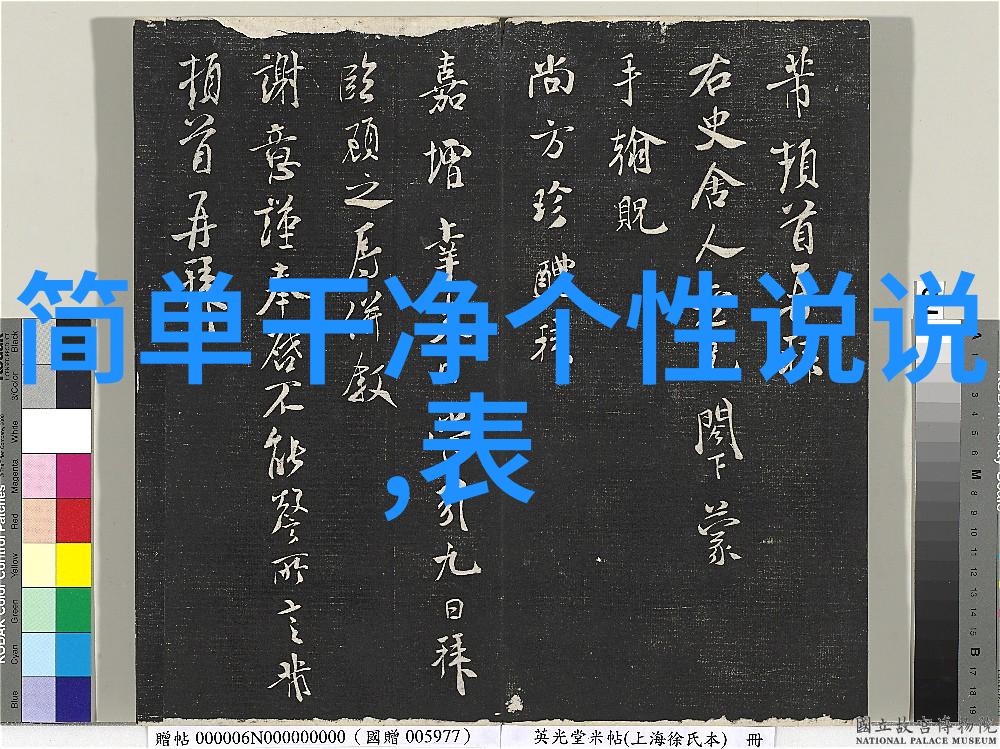 芾頓首再拜
右史舍人
閣下蒙
手翰貺
尚方珍醴拜
嘉增
九日拜
臨顧之辱併敘
謝意謹奉啓不能謦所言芾
頓首再拜
简单干净个性说说
,表
贈帖 000006N000000000 (國贈 005977)
英光堂米帖(上海徐氏本) 冊
國立故宮博物院
NATIONAL PALACE MUSEUM
3/Color
Black
White
Magenta
Red
Yellow
Green
Cyan
Blue
KODAK Color Control Patches
A
1
2
3
4
5
6
M
8
9
10
11
12
13
14
15
B
17
18
19